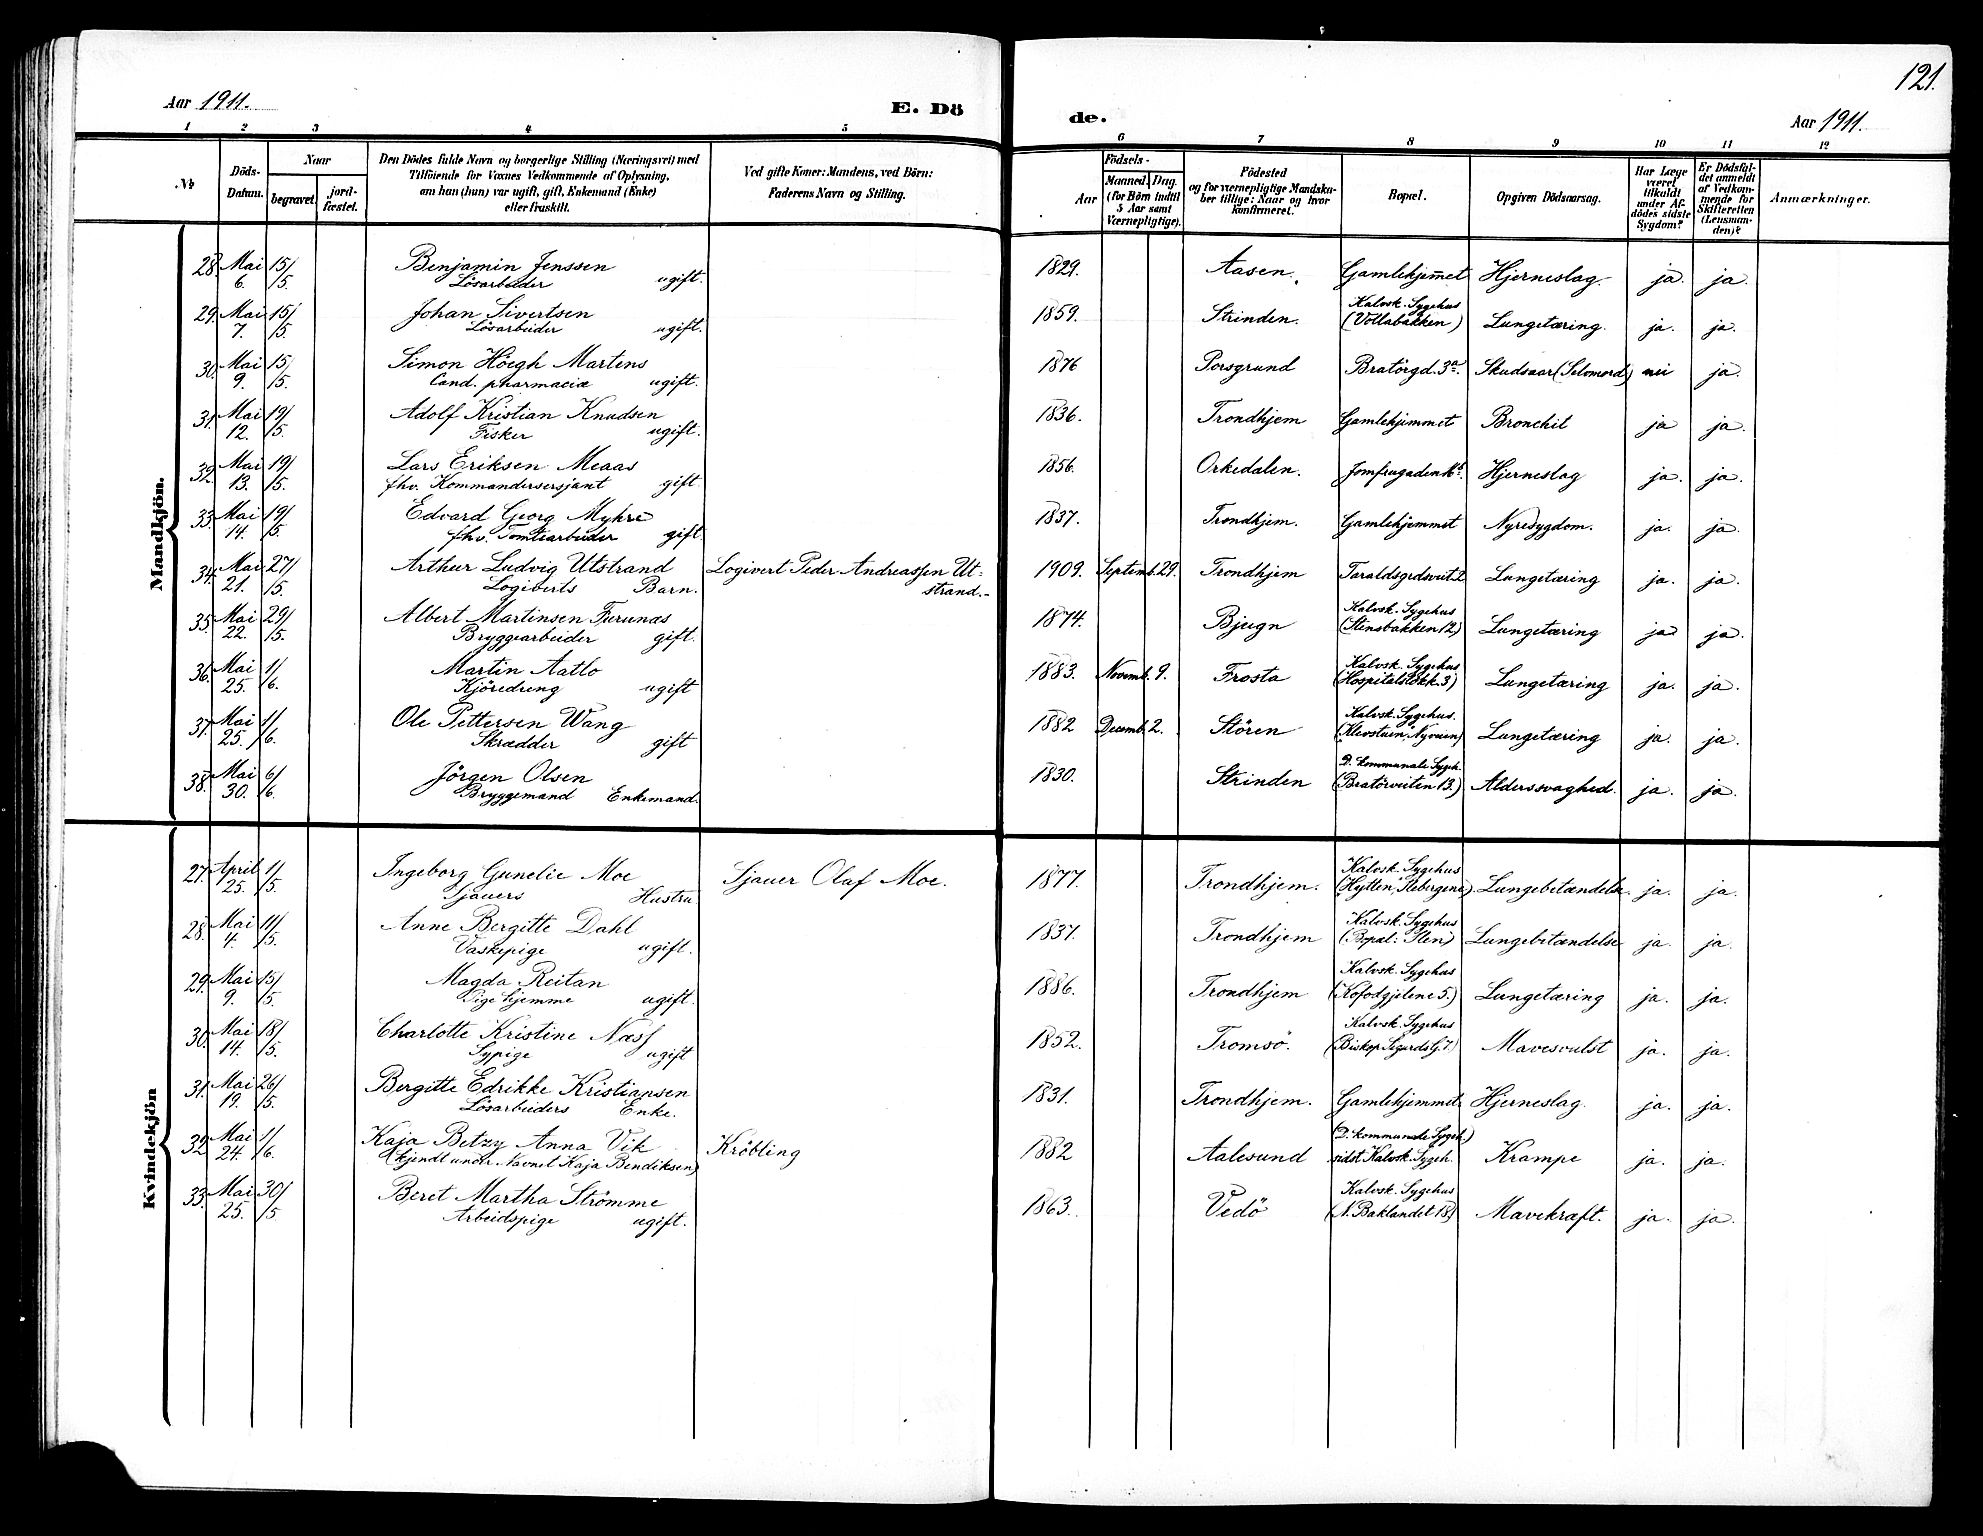 121.
Aar 1911.
E. Dö
de.
Aar 1911.
1 2 3 4 5 6 7 8 9 10 11 12
№
Döds-
Datum.
Naar
begravet.
jord-
fæstet.
Den Dödes fulde Navn og borgerlige Stilling (Næringsvei) med
Tilföiende for Voxnes Vedkommende af Oplysning,
om han (hun) var ugift, gift, Enkemand (Enke)
eller fraskilt.
Ved gifte Koner: Mandens, ved Börn:
Faderens Navn og Stilling.
Födsels-
Aar
Maaned. Dag.
(for Börn indtil
5 Aar samt
Værnepligtige).
Födested
og for værnepligtige Mandska-
ber tillige: Naar og hvor
konfirmeret.
Bopæl.
Opgiven Dödsaarsag.
Har Læge
været
tilkaldt
under Af-
dödes sidste
Sygdom?
Er Dödsfal-
det anmeldt
af Vedkom-
mende for
Skifteretten
(Lensman-
den)?
Anmærkninger.
Mandkjön.
28. Mai 15/ Benjamin Jenssen 1829. Aasen. Gamlehjemmet Hjerneslag. ja. ja.
6. /5. Lösarbeider ugift.
29. Mai 15/ Johan Sivertsen 1859. Strinden. Kalvsk. Sygehus
7. /5. Lösarbeider ugift. (Vollabakken) Lungetæring. ja. ja.
30. Mai 15/ Simon Höegh Martens 1876 Porsgrund Bratörgd. 3a. Skudsaar (Selvmord) nei ja.
9. /5. Cand. pharmaciæ ugift.
31. Mai 19/ Adolf Kristian Knudsen 1836. Trondhjem Gamlehjemmet Bronchit ja ja.
12. /5. Fisker ugift.
32. Mai 19/ Lars Eriksen Meaas 1856. Orkedalen. Jomfrugaden Hjerneslag ja. ja.
13. /5. fhv. Kommandersersjant gift.
33. Mai 19/ Edvard Georg Myhre 1837. Trondhjem. Gamlehjemmet Nyresygdom. ja. ja
14. /5. fhv. Tomtearbeider gift.
34. Mai 27/ Arthur Ludvig Utstrand Logivert Peder Andreassen Ut- 1909. Septemb. 29. Trondhjem Taraldsgrdsveit 2 Lungetæring ja. ja.
21. /5. Logiverts Barn. strand.-
35. Mai 29/ Albert Martinsen Furunæs 1874. Bjugn Kalvsk. Sygehus
22. /5. Bryggearbeider gift. (Stensbakken 12) Lungetæring ja ja.
36. Mai 1/ Martin Aatlo 1883. Novemb. 9. Frosta Kalvsk. Sygehus
25. /6. Kjöredreng ugift (Hospitalslökk. 3) Lungetæring ja. ja.
37. Mai 1/ Ole Pettersen Wang 1882 Decemb. 2. Stören Kalvsk. Sygehus.
25. /6. Skrædder gift Nyveien) Lungetæring ja. ja.
38. Mai 6/ Jörgen Olsen 1830. Strinden D. kommunale Sygeh.
30. /6. Bryggemand Enkemand. (Bratörveiten 13.) Alderssvaghed. ja. ja.
Kvindekjön
27. April 1/ Ingeborg Gunelie Moe Sjauer Olaf Moe. 1877. Trondhjem. Kalvsk. Sygehus
25. /5. Sjauers Hustru (Hytten, Ilebergene) Lungebetændelse. ja. ja.
28. Mai 11/ Anne Bergitte Dahl 1837. Trondhjem Kalvsk. Sygehus
4. /5. Vaskepige ugift. (Bopæl: Ilen) Lungebetændelse ja. ja.
29. Mai 15/ Magda Reitan 1886. Trondhjem Kalvsk. Sygehus
9. /5. Pige hjemme ugift. (Kofodgjelene 5.) Lungetæring ja. ja.
30. Mai 18/ Charlotte Kristine Næss 1852. Tromsö. Kalvsk. Sygehus
14. /5. Sypige ugift (Biskop Sigurds G. 7.) Mavesvulst ja. ja.
31. Mai 26/ Bergitte Edrikke Kristiansen 1831. Trondhjem. Gamlehjemmet. Hjerneslag. ja. ja.
19. /5. Lösarbeiders Enke.
32. Mai 1/ Kaja Betzy Anna Vik Kröbling 1882 Aalesund (D. kommunale Sygeh.)
24. /6. (kjendt under Navnet Kaja Bendiksen) sidst Kalvsk. Sygeh. Krampe ja. ja.
33. Mai 30/ Beret Martha Strömme 1863. Vedö Kalvsk. Sygehus
25. /5 Arbeidspige ugift. (N. Baklandet 18) Mavekræft. ja. ja.